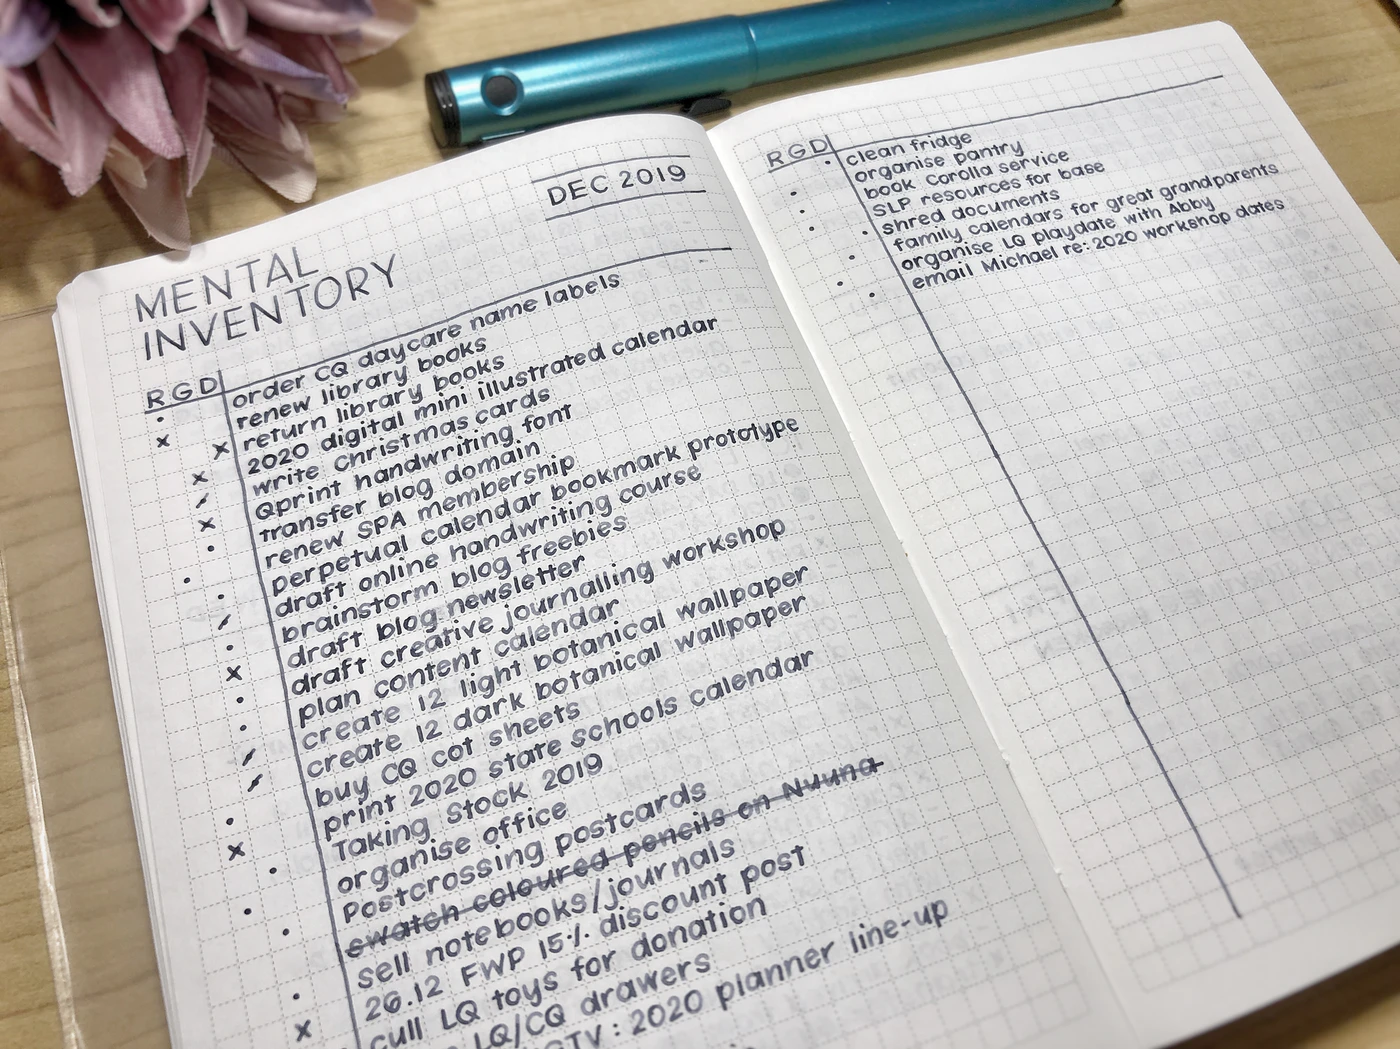 DEC 2019
MENTAL
INVENTORY
R G D
order CQ daycare name labels
renew library books
return library books
2020 digital mini illustrated calendar
write Christmas cards
Qprint handwriting font
transfer blog domain
renew SPA membership
perpetual calendar bookmark prototype
draft online handwriting course
brainstorm blog freebies
draft blog newsletter
draft creative journalling workshop
plan content calendar
create 12 light botanical wallpaper
create 12 dark botanical wallpaper
buy CQ cot sheets
print 2020 state schools calendar
Taking Stock 2019
organise office
Postcrossing postcards
swatch coloured pencils on Nuuna
sell notebooks/journals
26.12 FWP 15% discount post
cull LQ toys for donation
LQ/CQ drawers
: 2020 planner line-up
R G D
clean fridge
organise pantry
book Corolla service
SLP resources for base
shred documents
family calendars for great grandparents
organise LQ playdate with Abby
email Michael re: 2020 workshop dates